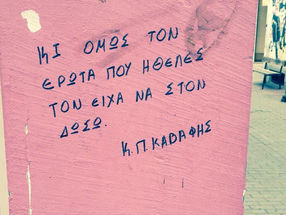 ΚΙ ΟΜΩΣ ΤΟΝ
ΕΡΩΤΑ ΠΟΥ ΗΘΕΛΕΣ
ΤΟΝ ΕΙΧΑ ΝΑ ΣΤΟΝ
ΔΩΣΩ.
Κ.Π.ΚΑΒΑΦΗΣ